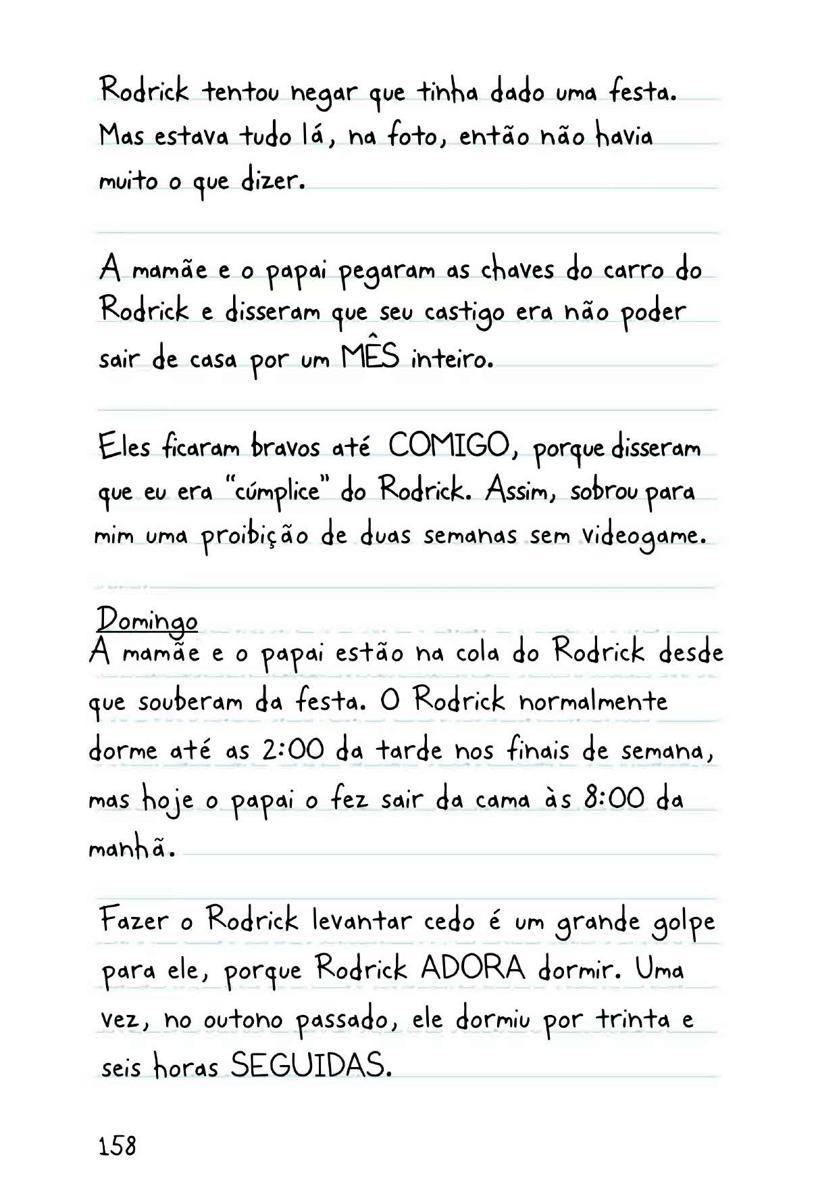 Rodrick tentou negar que tinha dado uma festa.
Mas estava tudo lá, na foto, então não havia
muito o que dizer.
A mamãe e o papai pegaram as chaves do carro do
Rodrick e disseram que seu castigo era não poder
sair de casa por um MÊS inteiro.
Eles ficaram bravos até COMIGO, porque disseram
que eu era "cúmplice" do Rodrick. Assim, sobrou para
mim uma proibição de duas semanas sem videogame.
Domingo
A mamãe e o papai estão na cola do Rodrick desde
que souberam da festa. O Rodrick normalmente
dorme até as 2:00 da tarde nos finais de semana,
mas hoje o papai o fez sair da cama às 8:00 da
manhã.
Fazer o Rodrick levantar cedo é um grande golpe
para ele, porque Rodrick ADORA dormir. Uma
vez, no outono passado, ele dormiu por trinta e
seis horas SEGUIDAS.
158